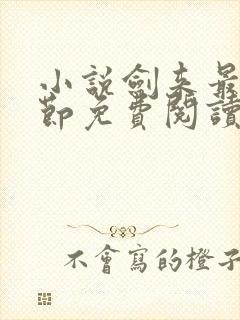 小說劍來最
節免費閱讀
不會寫的橙子